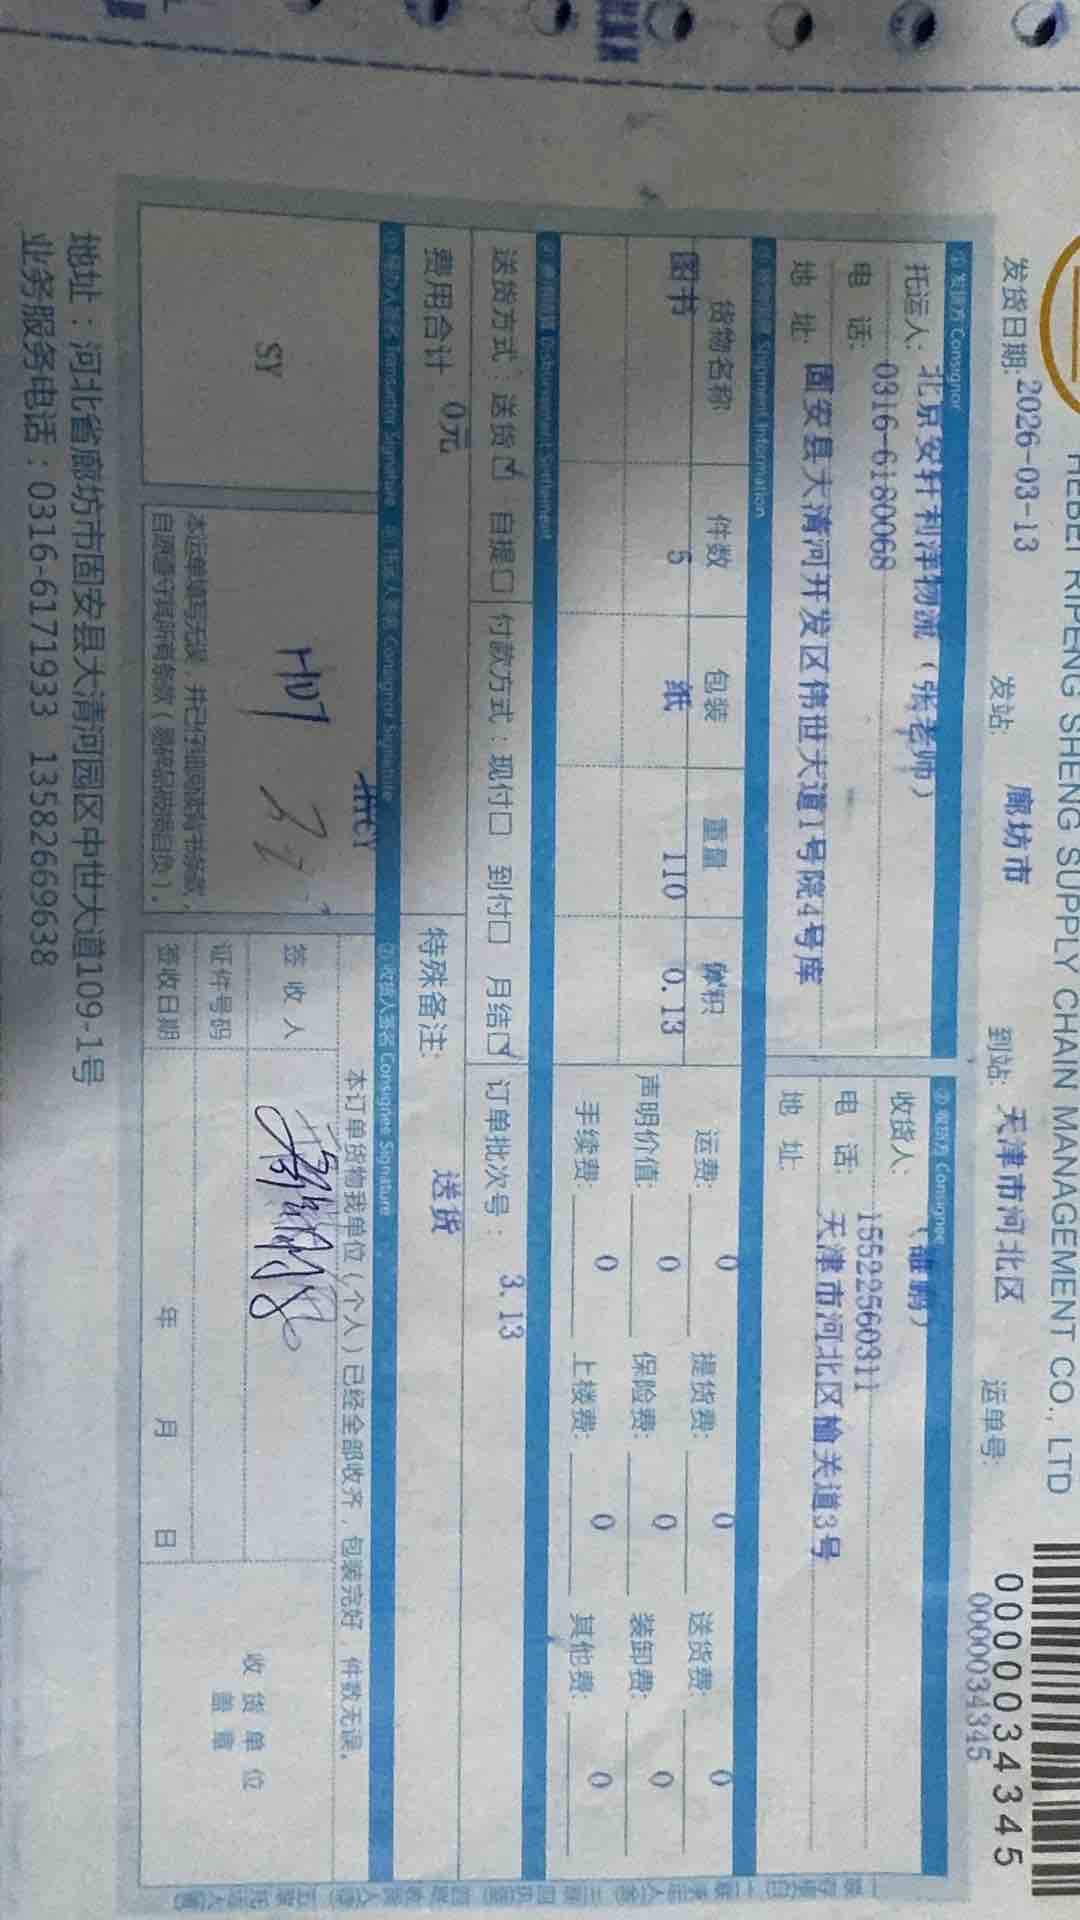 HEBEI RIPENG SHENG SUPPLY CHAIN MANAGEMENT CO., LTD
0000034345
发货日期: 2026-03-13 发站: 廊坊市 到站: 天津市河北区 运单号: 0000034345
① 发货方 Consignor
托运人: 北京安轩利洋物流(张老师)
电 话: 0316-6180068
地 址: 固安县大清河开发区伟世大道1号院4号库
② 收货方 Consignee
收货人:
电 话: 15522560311
地 址: 天津市河北区榆关道3号
Shipment Information
货物名称 件数 包装 重量 体积
图书 5 纸 110 0.13
运费: 0 提货费: 0 送货费: 0
声明价值: 0 保险费: 0 装卸费: 0
手续费: 0 上楼费: 0 其他费: 0
Disbursement Settlement
送货方式:送货☑ 自提□ 付款方式:现付□ 到付□ 月结☑ 订单批次号: 3.13
费用合计 0元 特殊备注: 送货
Transactor Signature Consignor Signature ⑦ 收货人签名 Consignee Signature
SY
本运单填写无误,并已仔细阅读背书条款,
本订单货物我单位(个人)已经全部收齐,包装完好,件数无误。
签 收 人
证件号码
签收日期 年 月 日
收 货 单 位
盖 章
地址:河北省廊坊市固安县大清河园区中世大道109-1号
业务服务电话:0316-6171933 13582669638